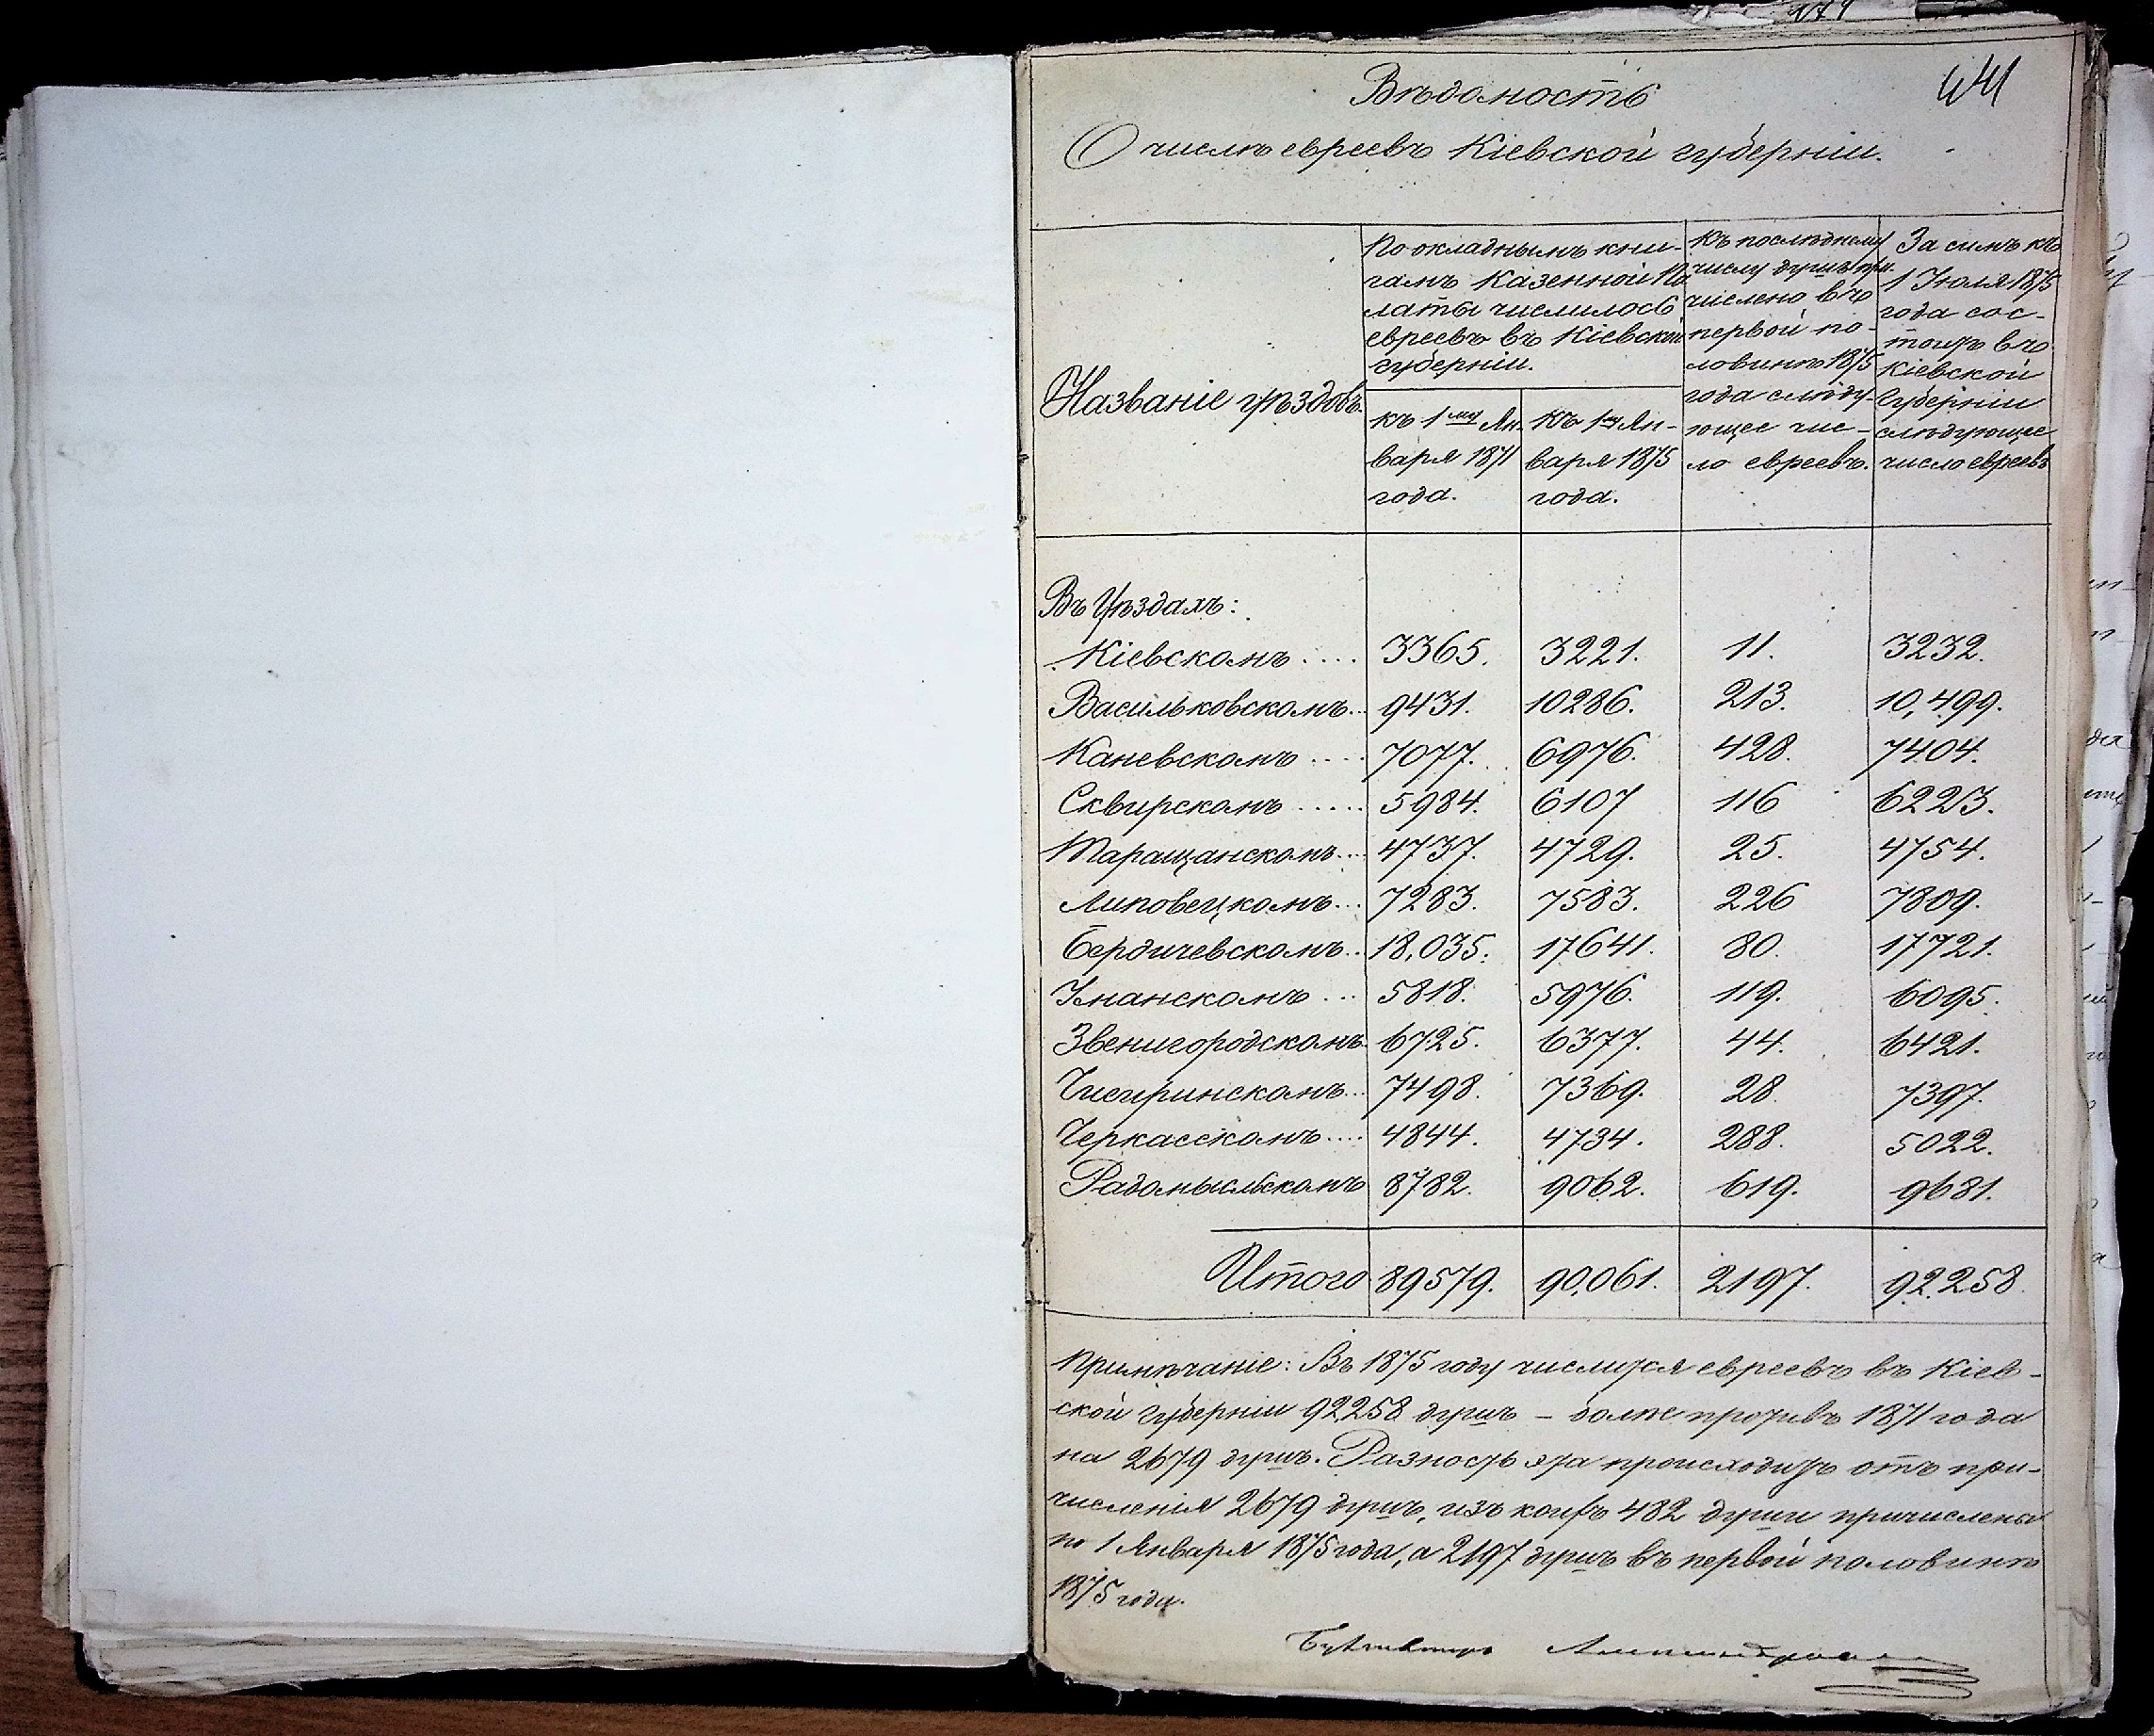 Вѣдомость
О числѣ евреевъ Кіевской губерніи.
Названіе уѣздовъ.
По окладнымъ кни-
гамъ Казенной Па
латы числилось
евреевъ въ Кіевской
губерніи.
къ 1му Ян-
варя 1871
года.
къ 1му Ян-
варя 1875
года.
Къ послѣднему
числу душъ при-
числено въ
первой по-
ловинѣ 1875
года слѣду-
ющее чис-
ло евреевъ.
За симъ къ
1 Іюля 1875
года сос-
тоитъ въ
Кіевской
Губерніи
слѣдующее
число евреевъ
Въ Уѣздахъ:
Кіевскомъ .... 3365. 3221. 11. 3232.
Васильковскомъ... 9431. 10286. 213. 10,499.
Каневскомъ .... 7077. 6976. 428. 7404.
Сквирскомъ ..... 5984. 6107 116 6223.
Таращанскомъ... 4737. 4729. 25. 4754.
Липовецкомъ... 7283. 7583. 226 7809.
Бердичевскомъ.. 18,035. 17641. 80. 17721.
Уманскомъ ... 5818. 5976. 119. 6095.
Звенигородскомъ. 6725. 6377. 44. 6421.
Чигиринскомъ... 7498. 7369. 28. 7397.
Черкасскомъ.... 4844. 4734. 288. 5022.
Радомысльскомъ 8782. 9062. 619. 9681.
Итого 89579. 90,061. 2197. 92.258.
Примѣчаніе: Въ 1875 году числится евреевъ въ Кіев-
ской губерніи 92258 душъ – болѣе противъ 1871 года
на 2679 душъ. Разность эта происходитъ отъ при-
численія 2679 душъ, изъ коихъ 482 души причислены
по 1 Января 1875 года, а 2197 душъ въ первой половинѣ
1875 года.
Бухгалтеръ